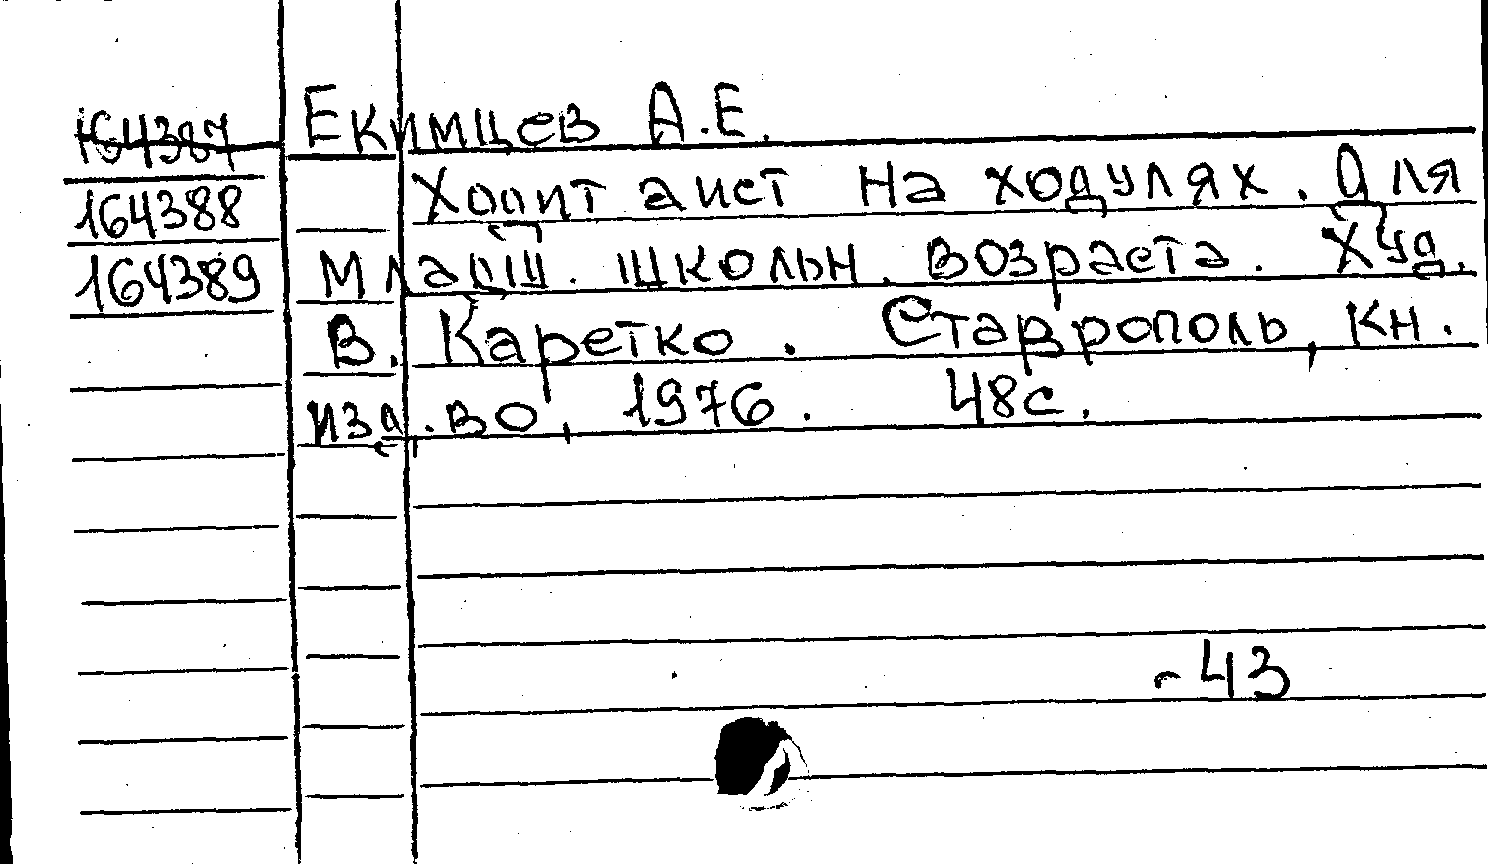 Екимцев А.Е.
164387
Ходит аист на ходулях. Для
164388
младш. школьн. возраста. Худ.
164389
В. Каретко. Ставрополь, Кн.
изд.во, 1976. 48с.
-43